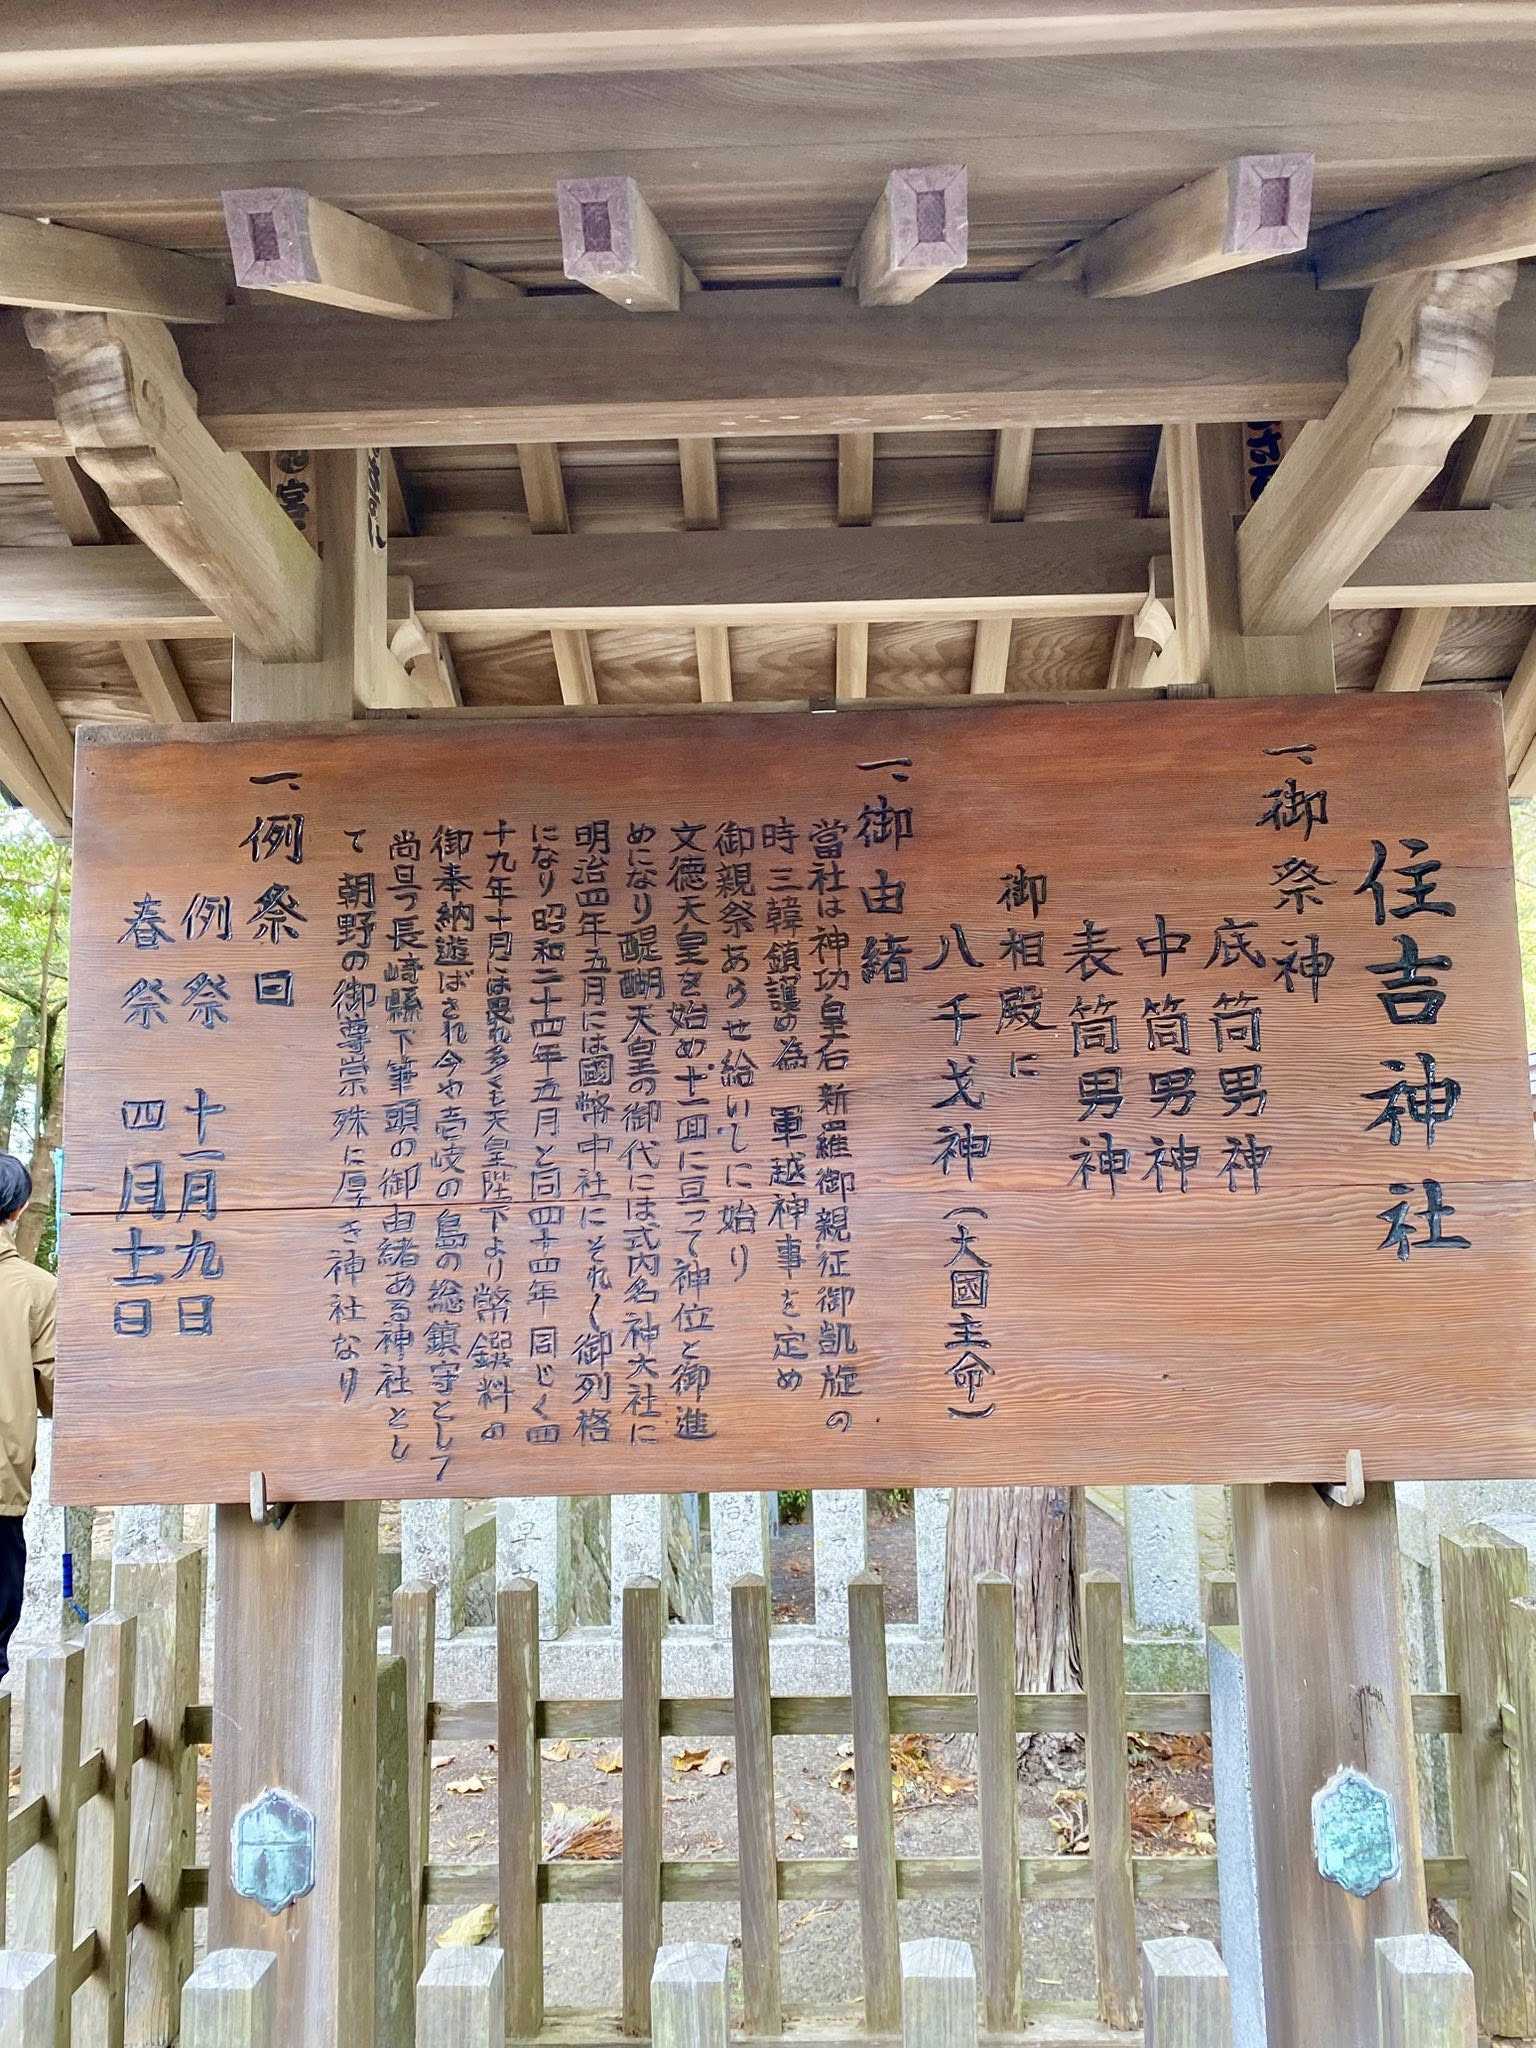 住吉神社
一、御祭神
底筒男神
中筒男神
表筒男神
御相殿に
八千戈神（大國主命）
一、御由緒
當社は神功皇后新羅御親征御凱旋の
時三韓鎮護の為 軍越神事を定め
御親祭あらせ給いしに始り
文徳天皇を始め十一回に亘って神位と御進
めになり醍醐天皇の御代には式内名神大社に
明治四年五月には國幣中社にそれ〳〵御列格
になり昭和二十四年五月と同四十四年同じく四
十九年十月には畏れ多くも天皇陛下より幣饌料の
御奉納遊ばされ今や壱岐の島の総鎮守として
尚且つ長崎縣下筆頭の御由緒ある神社とし
て朝野の御尊崇殊に厚き神社なり
一、例祭日
例祭 十一月九日
春祭 四月十一日